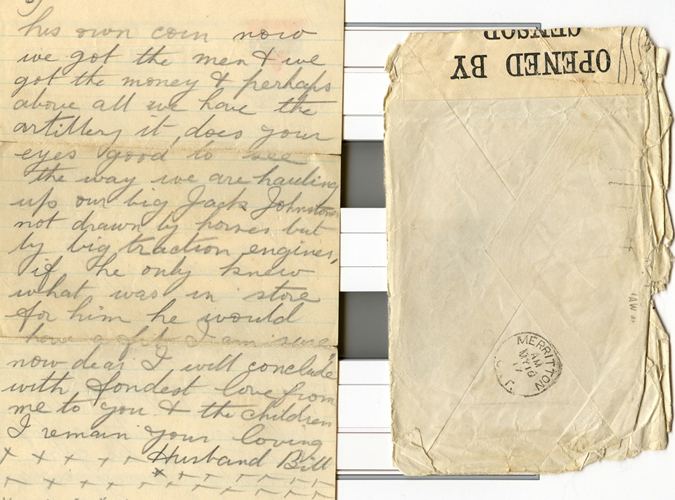 his own coin now
we got the men & we
got the money & perhaps
above all we have the
artillery it, does your
eyes good to see
the way we are hauling
up our big Jack Johnstons
not drawn by horses but
by big traction engines,
if he only knew
what was in store
for him he would
have a fit I am sure
now dear I will conclude
with fondest love from
me to you & the children
I remain your loving
Husband Bill
OPENED BY
CENSOR
MERRITTON
AM
MY 16
17
ONT.